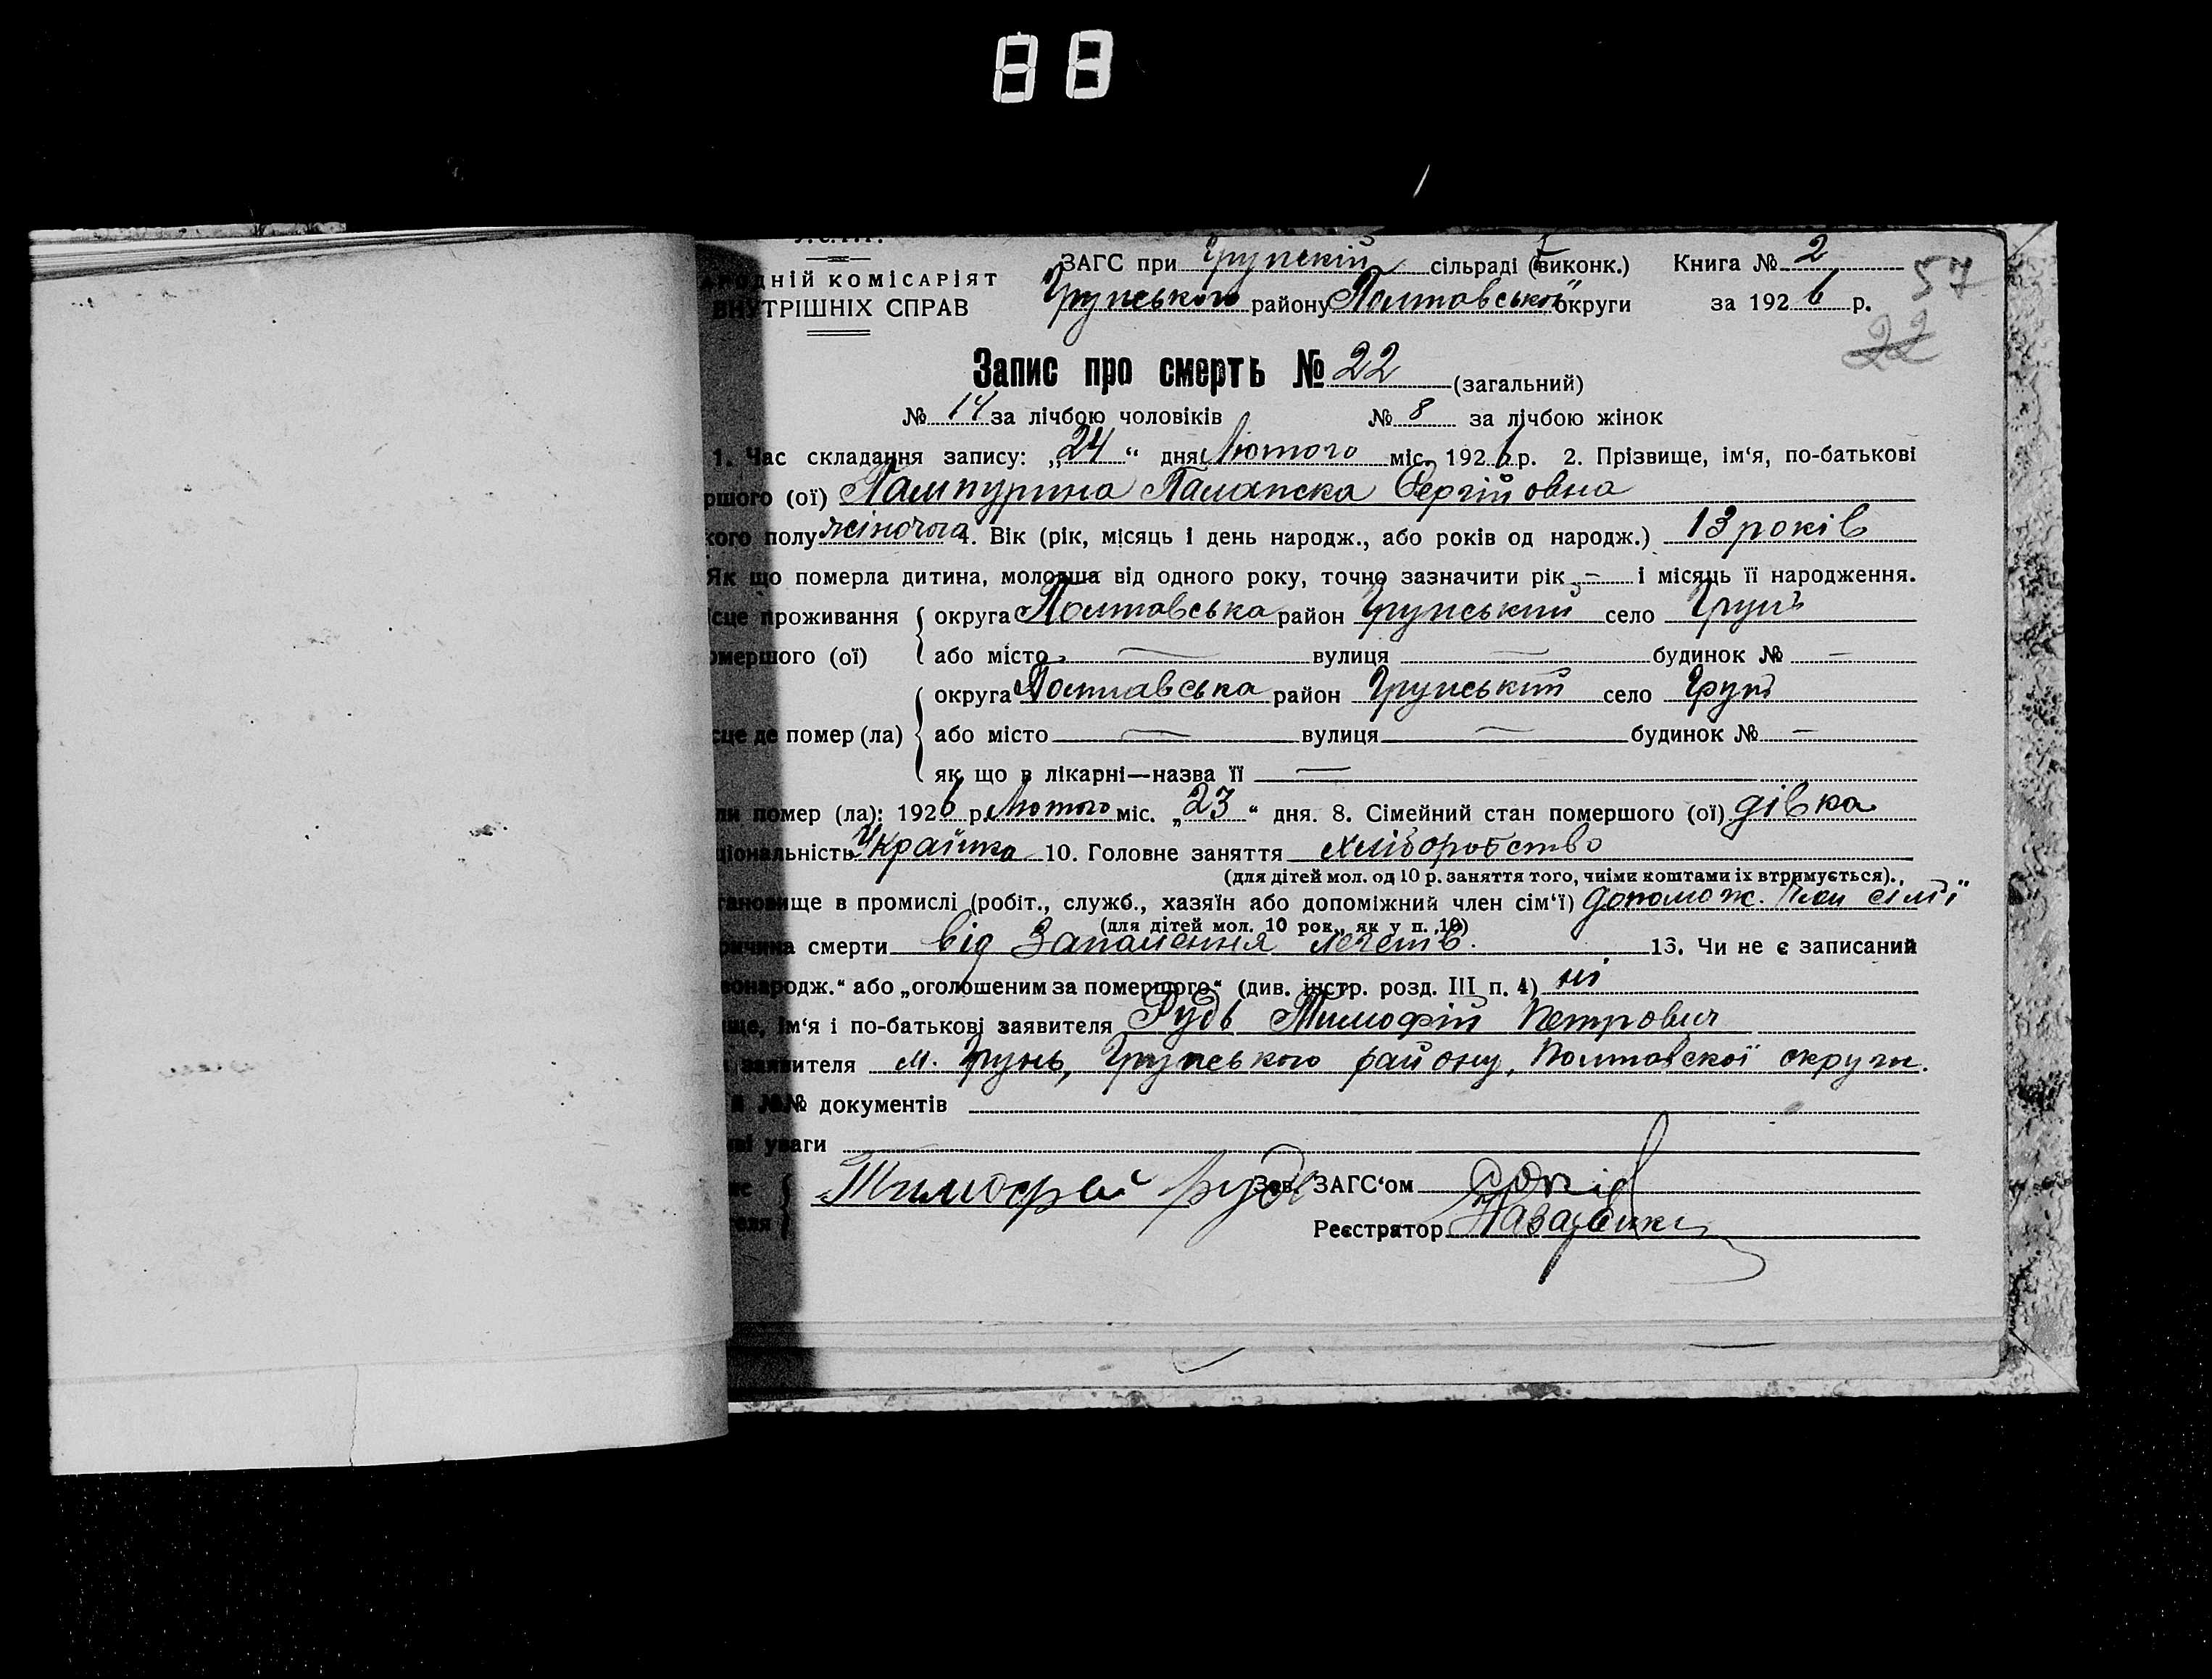 88
У.С.Р.Р.
АРОДНІЙ КОМІСАРІЯТ
ВНУТРІШНІХ СПРАВ
ЗАГС при Грунській сільраді (виконк.) Книга № 2
57
Грунського району Полтавської округи за 1926 р.
22
Запис про смерть № 22 (загальний)
№ 14 за лічбою чоловіків № 8 за лічбою жінок
1. Час складання запису: „24“ дня Лютого міс. 1926 р. 2. Прізвище, ім‘я, по-батькові
ршого (ої) Пампурина Палажка Сергійовна
кого полу жіночога 4. Вік (рік, місяць і день народж., або років од народж.) 13 років
Як що померла дитина, молодша від одного року, точно зазначити рік — і місяць її народження.
сце проживання округа Полтавська район Грунський село Грунь
омершого (ої) або місто — вулиця — будинок № —
округа Полтавська район Грунський село Грунь
сце де помер (ла) або місто — вулиця — будинок № —
як що в лікарні—назва її —
ли помер (ла): 1926 р. Лютого міс. „23“ дня. 8. Сімейний стан помершого (ої) дівка
ціональність Українка 10. Головне заняття хліборобство
(для дітей мол. од 10 р. заняття того, чиїми коштами їх втримується).
тановище в промислі (робіт., служб., хазяїн або допоміжний член сім‘ї) допомож. член сімї
(для дітей мол. 10 рок., як у п. 10)
ричина смерти від Запалення легенів. 13. Чи не є записаний
вонародж.“ або „оголошеним за померщого“ (див. інстр. розд. III п. 4) ні
ще, ім‘я і по-батькові заявителя Рудь Тимофій Петрович
заявителя м. Грунь, Грунського району, Полтавскої округи.
й №№ документів
ві уваги
ис Тимофей Рудь Зав. ЗАГС‘ом
теля Реєстратор